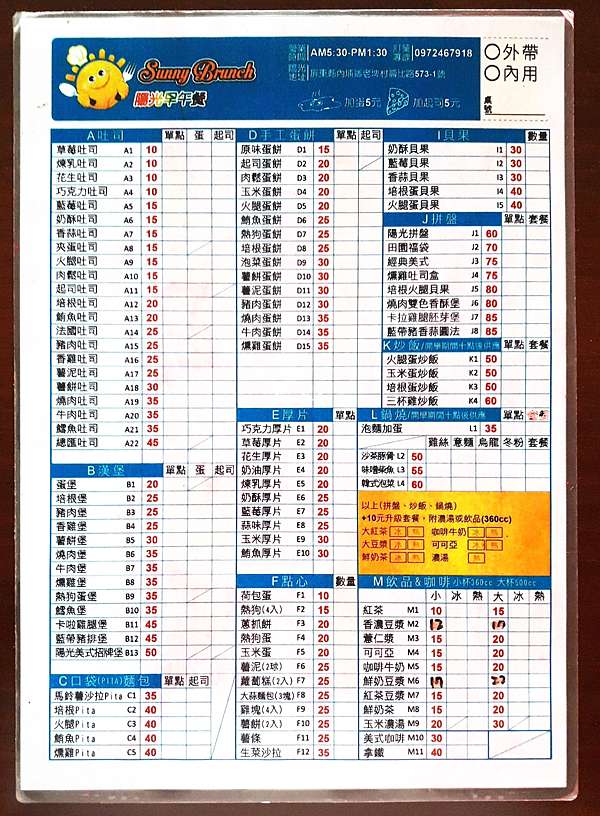 Sunny Brunch
陽光早午餐
營業時間 AM5:30-PM1:30 訂餐專線 0972467918
573-1號
加蛋5元 加起司5元
○外帶
○內用
桌號
A吐司 單點 蛋 起司
草莓吐司 A1 10
煉乳吐司 A2 10
花生吐司 A3 10
巧克力吐司 A4 10
藍莓吐司 A5 15
奶酥吐司 A6 15
香蒜吐司 A7 15
夾蛋吐司 A8 15
火腿吐司 A9 15
肉鬆吐司 A10 15
起司吐司 A11 15
培根吐司 A12 20
鮪魚吐司 A13 20
法國吐司 A14 25
豬肉吐司 A15 25
香雞吐司 A16 25
薯泥吐司 A17 25
薯餅吐司 A18 30
燒肉吐司 A19 35
牛肉吐司 A20 35
鱈魚吐司 A21 35
總匯吐司 A22 45
B漢堡 單點 蛋 起司
蛋堡 B1 20
培根堡 B2 25
豬肉堡 B3 25
香雞堡 B4 25
薯餅堡 B5 30
燒肉堡 B6 35
牛肉堡 B7 35
燻雞堡 B8 35
熱狗蛋堡 B9 35
鱈魚堡 B10 35
卡啦雞腿堡 B11 45
藍帶豬排堡 B12 45
陽光美式招牌堡 B13 50
C口袋(PITA)麵包 單點 起司
馬鈴薯沙拉Pita C1 35
培根Pita C2 40
火腿Pita C3 40
鮪魚Pita C4 40
燻雞Pita C5 40
D手工蛋餅 單點 起司
原味蛋餅 D1 15
起司蛋餅 D2 20
肉鬆蛋餅 D3 20
玉米蛋餅 D4 20
火腿蛋餅 D5 20
鮪魚蛋餅 D6 25
熱狗蛋餅 D7 25
培根蛋餅 D8 25
泡菜蛋餅 D9 30
薯餅蛋餅 D10 30
薯泥蛋餅 D11 30
豬肉蛋餅 D12 30
燒肉蛋餅 D13 35
牛肉蛋餅 D14 35
燻雞蛋餅 D15 35
E厚片 單點
巧克力厚片 E1 20
草莓厚片 E2 20
花生厚片 E3 20
奶油厚片 E4 20
煉乳厚片 E5 20
奶酥厚片 E6 25
藍莓厚片 E7 25
蒜味厚片 E8 25
玉米厚片 E9 30
鮪魚厚片 E10 30
F點心 數量
荷包蛋 F1 10
熱狗(4入) F2 15
蔥抓餅 F3 20
熱狗蛋 F4 20
玉米蛋 F5 25
薯泥(2球) F6 25
蘿蔔糕(2入) F7 25
大蒜麵包(3塊) F8 25
雞塊(4入) F9 25
薯餅(2入) F10 25
薯條 F11 25
生菜沙拉 F12 35
I貝果 數量
奶酥貝果 I1 30
藍莓貝果 I2 30
香蒜貝果 I3 30
培根蛋貝果 I4 40
火腿蛋貝果 I5 40
J拼盤 單點 套餐
陽光拼盤 J1 60
田園福袋 J2 70
經典美式 J3 75
燻雞吐司盒 J4 75
培根火腿貝果 J5 80
燒肉雙色香酥堡 J6 80
卡拉雞腿胚芽堡 J7 85
藍帶豬香蒜圓法 J8 85
K炒飯/開學期間十點後供應 單點 套餐
火腿蛋炒飯 K1 50
玉米蛋炒飯 K2 50
培根蛋炒飯 K3 50
三杯雞炒飯 K4 60
L鍋燒/開學期間十點後供應 單點
泡麵加蛋 L1 35
雞絲 意麵 烏龍 冬粉 套餐
沙茶豚骨 L2 50
味噌柴魚 L3 55
韓式泡菜 L4 60
以上(拼盤、炒飯、鍋燒)
+10元升級套餐，附濃湯或飲品(360cc)
大紅茶 冰 熱 咖啡牛奶 冰 熱
大豆漿 冰 熱 可可亞 冰 熱
鮮奶茶 冰 熱 濃湯
M飲品&咖啡 小杯360cc 大杯500cc
小 冰 熱 大 冰 熱
紅茶 M1 10 15
香濃豆漿 M2 12
薏仁漿 M3 15 20
可可亞 M4 15 20
咖啡牛奶 M5 15 20
鮮奶豆漿 M6
紅茶豆漿 M7 15 20
鮮奶茶 M8 15 20
玉米濃湯 M9 20 30
美式咖啡 M10 30
拿鐵 M11 40